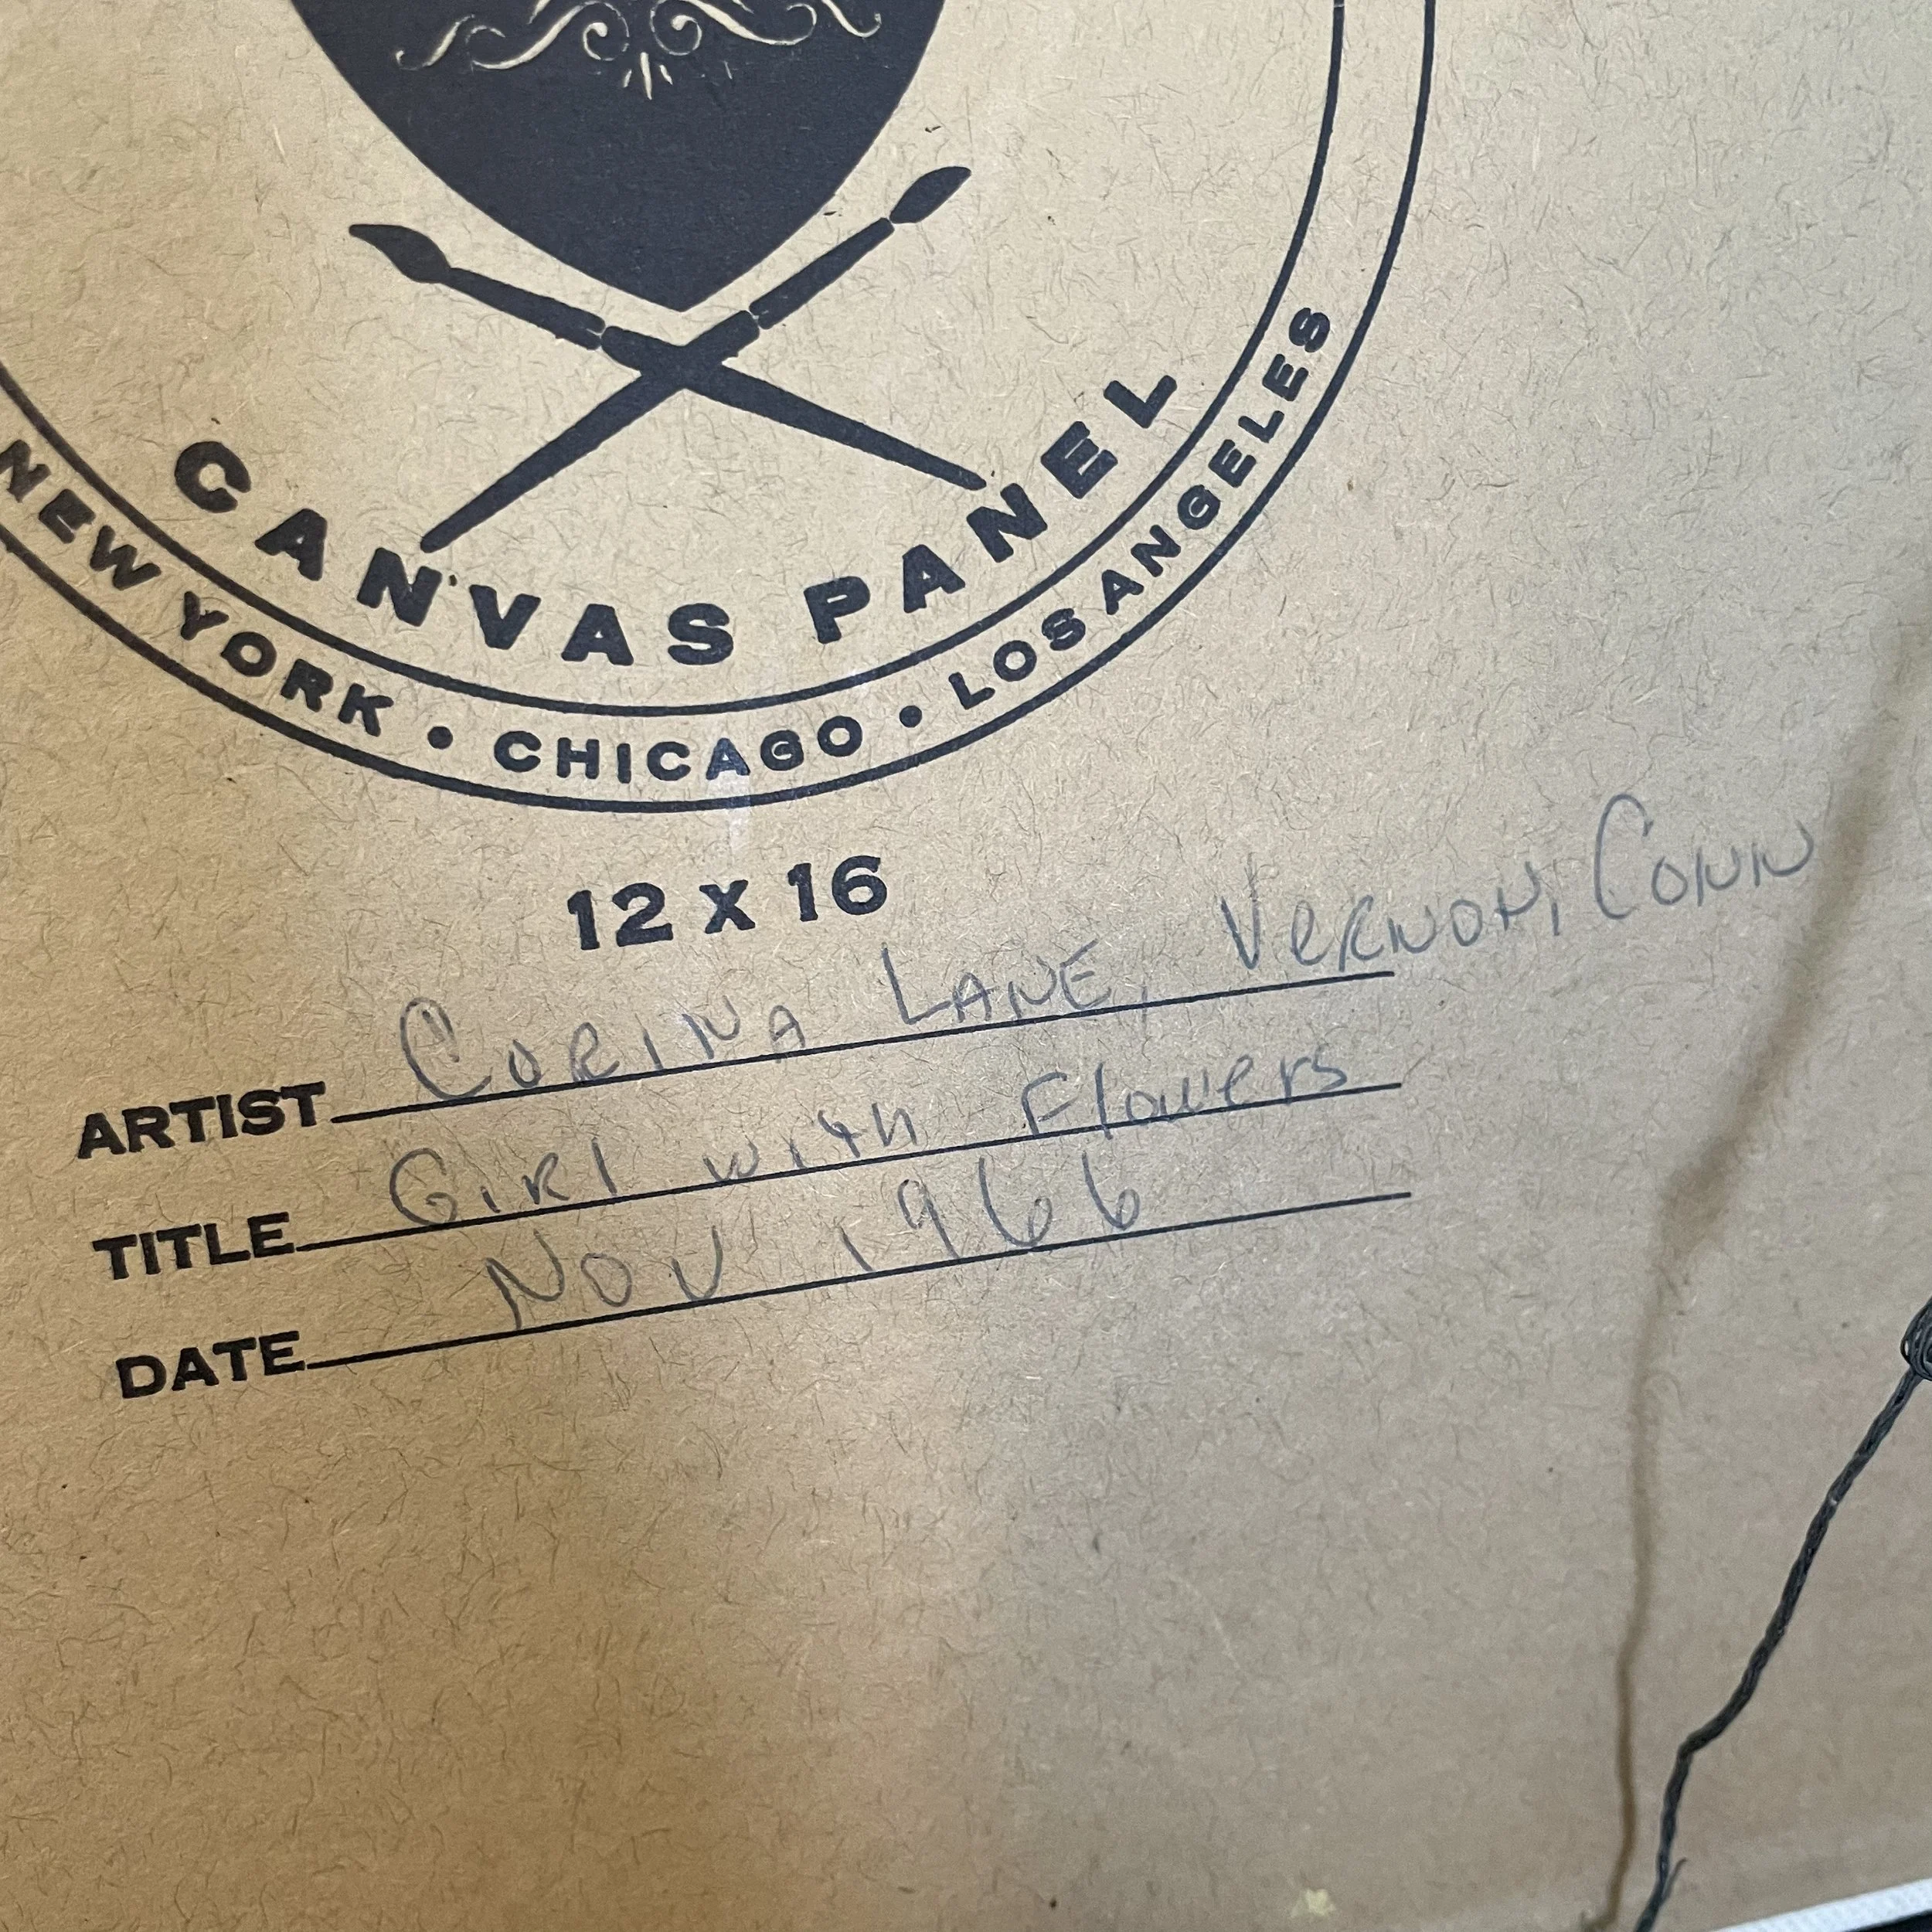 CANVAS PANEL
NEW YORK • CHICAGO • LOS ANGELES
12 x 16
ARTIST CORINA LANE, VERNON, CONN
TITLE GIRl with Flowers
DATE NOV 1966